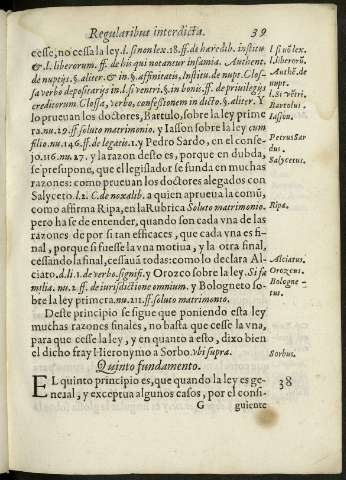 Regularibus interdicta. 39
cesse, no cessa la ley. l. si non lex. 18. ff. de hæredib. institu
& l. liberorum. ff. de his qui notantur infamia. Authent.
de nuptijs. §. aliter. & in. §. affinitatis, Institu. de nupt. Glos-
sa verbo depositarijs in d. l. si ventri. §. in bonis. ff. de privilegijs
creditorum. Glossa, verbo, confessionem in dicto. §. aliter. Y
lo prueuan los doctores, Bartulo, sobre la ley prime
ra. nu. 29. ff. soluto matrimonio. y Iasson sobre la ley cum
filio. nu. 146. ff. de legatis. 1. y Pedro Sardo, en el conse-
jo. 116. nu. 27. y la razon desto es, porque en dubda,
se presupone, que el legislador se funda en muchas
razones: como prueuan los doctores alegados con
Salyceto. l. 2. C. de noxalib. a quien aprueua la comũ,
como affirma Ripa, en la Rubrica Soluto matrimonio.
pero ha se de entender, quando son cada vna de las
razones de por si tan efficaces, que cada vna es fi-
nal, porque si fuesse la vna motiua, y la otra final,
cessando la final, cessaua todas: como lo declara Al-
ciato. d. l. 1. de verbo. signifi. y Orozco sobre la ley. Si fa
milia. nu. 2. ff. de iurisdictione omnium. y Bologneto so-
bre la ley primera. nu. 111. ff. soluto matrimonio.
Deste principio se sigue que poniendo esta ley
muchas razones finales, no basta que cesse la vna,
para que cesse la ley, y en quanto a esto, dixo bien
el dicho fray Hieronymo a Sorbo. vbi supra.
Quinto fundamento.
EL quinto principio es, que quando la ley es ge-
neral, y exceptua algunos casos, por el consi-
G guiente
l si nõ lex.
l. liberorũ.
Authẽ. de
nupt.
l. Si vẽtri.
Bartulus.
Iasson.
Petrus Sar
dus.
Salycetus.
Ripa.
Alciatus.
Orozcus.
Bologne-
tus.
Sorbus.
38